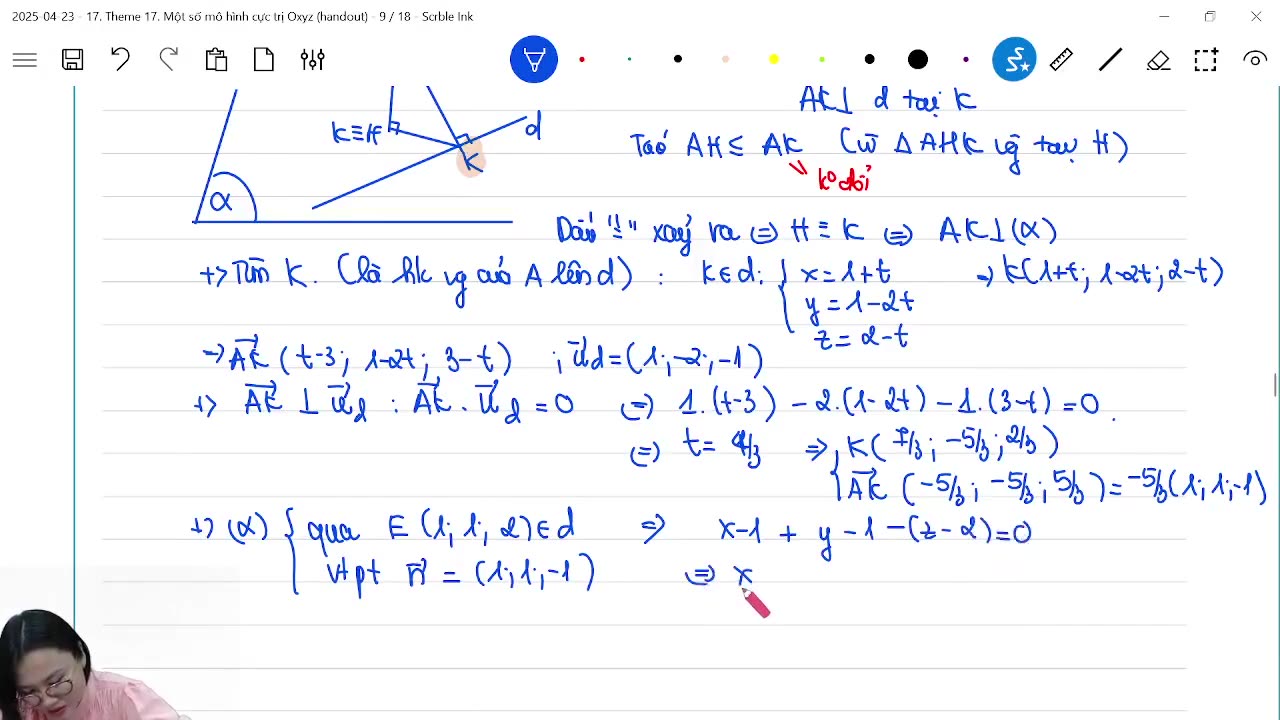 2025-04-23 - 17. Theme 17. Một số mô hình cực trị Oxyz (handout) - 9 / 18 - Scrble Ink
AK⊥ d tại K
K≡H
d
K
α
Ta có AH ≤ AK (vì Δ AHK vg tại H)
k° đổi
Dấu "=" xảy ra ⇔ H ≡ K ⇔ AK⊥(α)
+> Tìm K. (là hk vg của A lên d) : K∈d: { x = 1+t → K(1+t; 1-2t; 2-t)
y = 1-2t
z = 2-t
→ AK→ (t-3; 1-2t; 3-t) ; u→d = (1; -2; -1)
+> AK→ ⊥ u→d : AK→ . u→d = 0 ⇔ 1.(t-3) - 2.(1-2t) - 1.(3-t) = 0.
⇔ t = 4/3 ⇒ { K( 7/3; -5/3; 2/3)
AK→ (-5/3; -5/3; 5/3) = -5/3(1; 1; -1)
+> (α) { qua E (1; 1; 2) ∈ d ⇒ x-1 + y-1 -(z-2) = 0
vtpt n→ = (1; 1; -1) ⇔ x